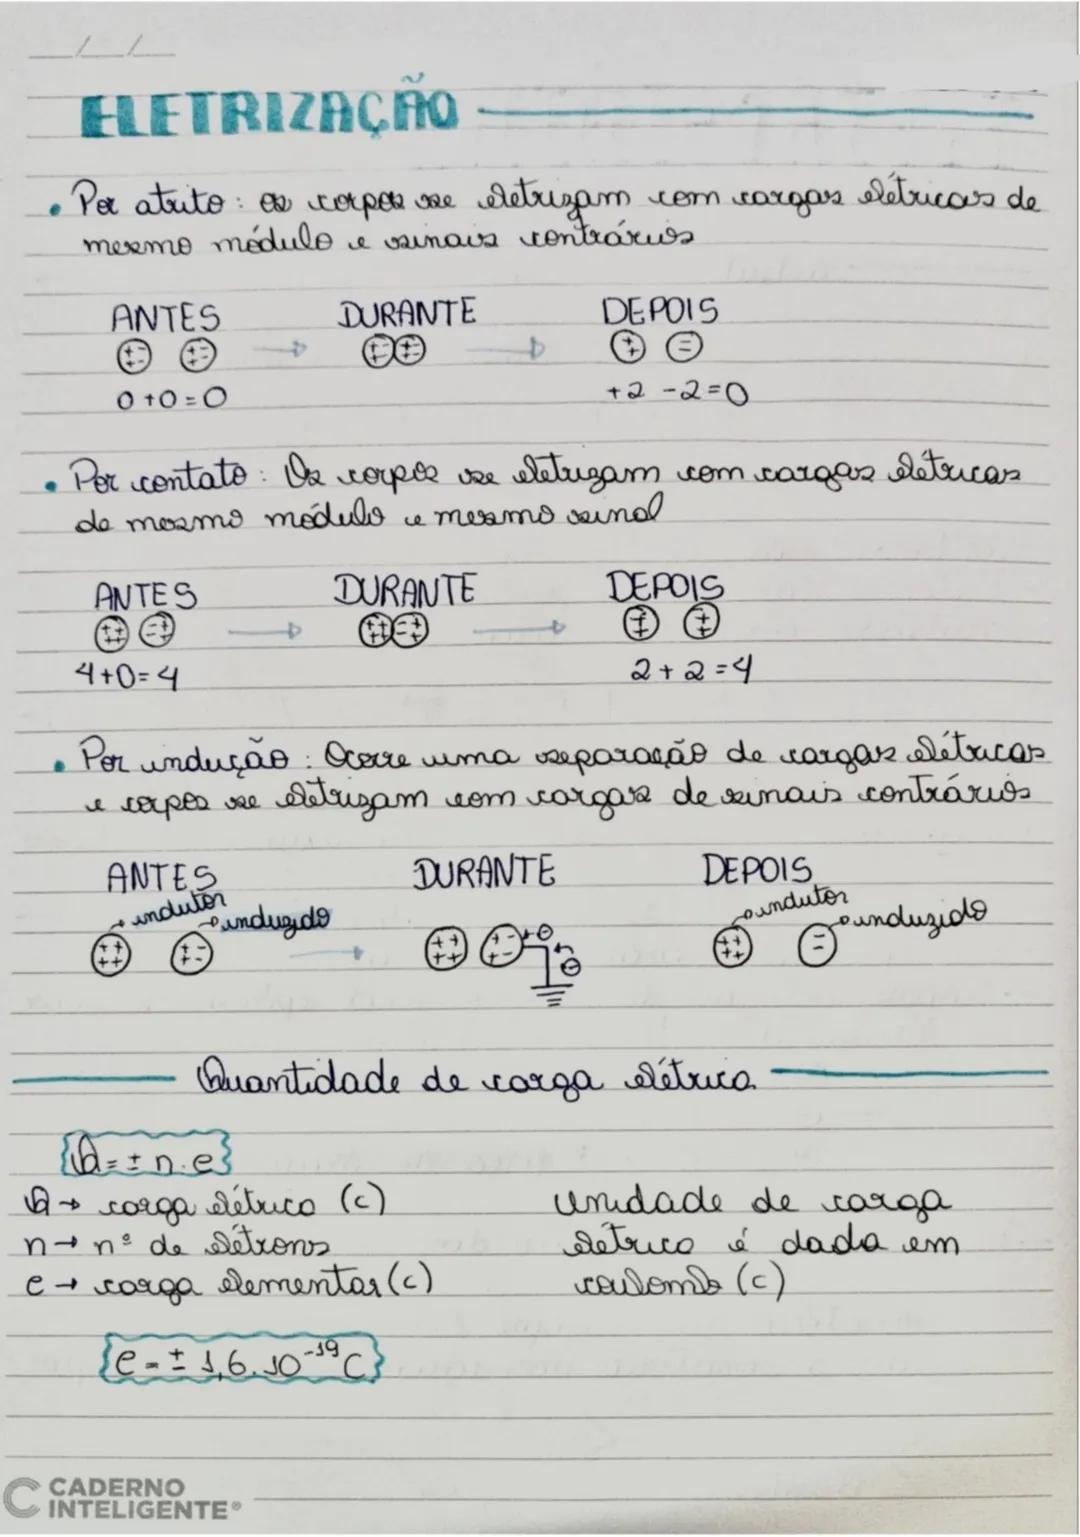 ELETRIZAÇÃO
• Por atrito: os corpos se eletrizam com cargas elétricas de
mesmo módulo e sinais contrários
ANTES DURANTE DEPOIS
0+0=0 +2 -2=0
• Por contato: Os corpos se eletrizam com cargas elétricas
de mesmo módulo e mesmo sinal
ANTES DURANTE DEPOIS
4+0=4 2+2=4
• Por indução: Ocorre uma separação de cargas elétricas
e corpos se eletrizam com cargas de sinais contrários
ANTES DURANTE DEPOIS
indutor induzido indutor induzido
Quantidade de carga elétrica
Q=±n.e
Q→ carga elétrica (c) Unidade de carga
n→ nº de elétrons elétrica é dada em
e→ carga elementar (c) coulomb (c)
e=±1,6.10⁻¹⁹C
CADERNO
INTELIGENTE®